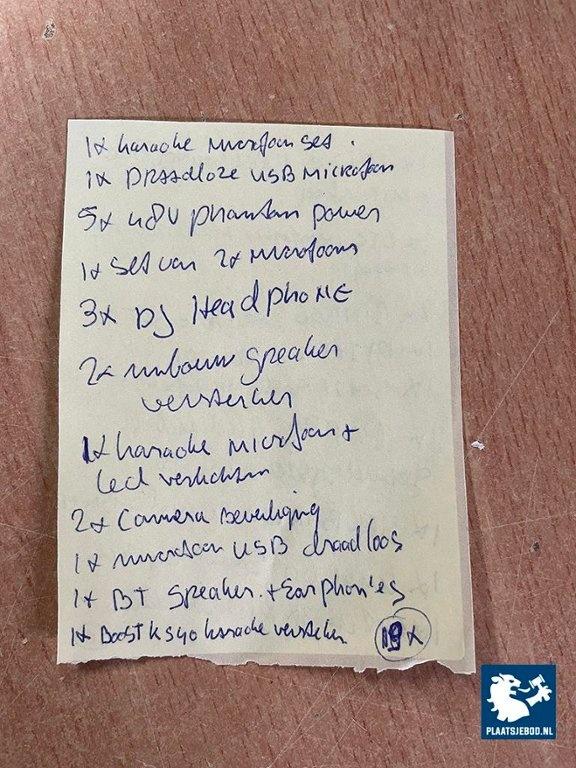 1x karaoke microfoon set.
1x Draadloze USB Microfoon
5x 48V phantom power
1x set van 2x microfoons
3x DJ HeadphoNE
2x inbouw speaker
versterker
1x karaoke microfoon +
led verlichten
2x Camera Beveiliging
1x microfoon USB draadloos
1x BT speaker. + Earphon'es
1x BoostK S40 karaoke versterker
18x
PLAATSJEBOD.NL